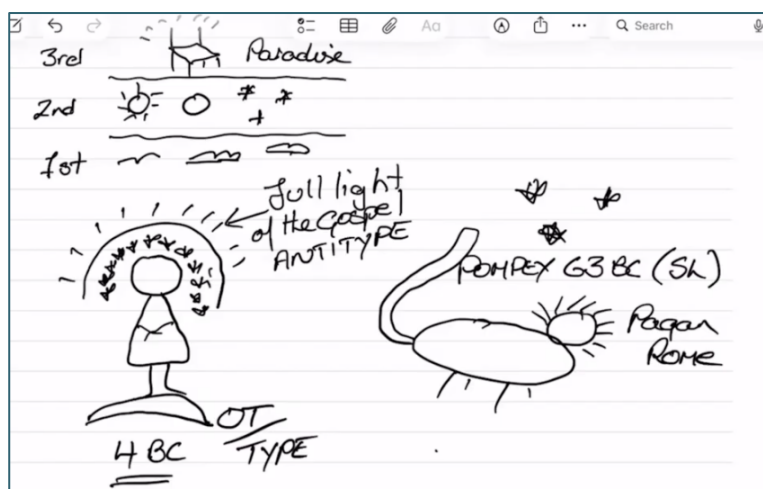 Aa
Search
3rd
Paradise
2nd
1st
full light
of the Gospel
ANTITYPE
POMPEY 63 BC (SL)
Pagan
ROME
OT/
TYPE
4 BC